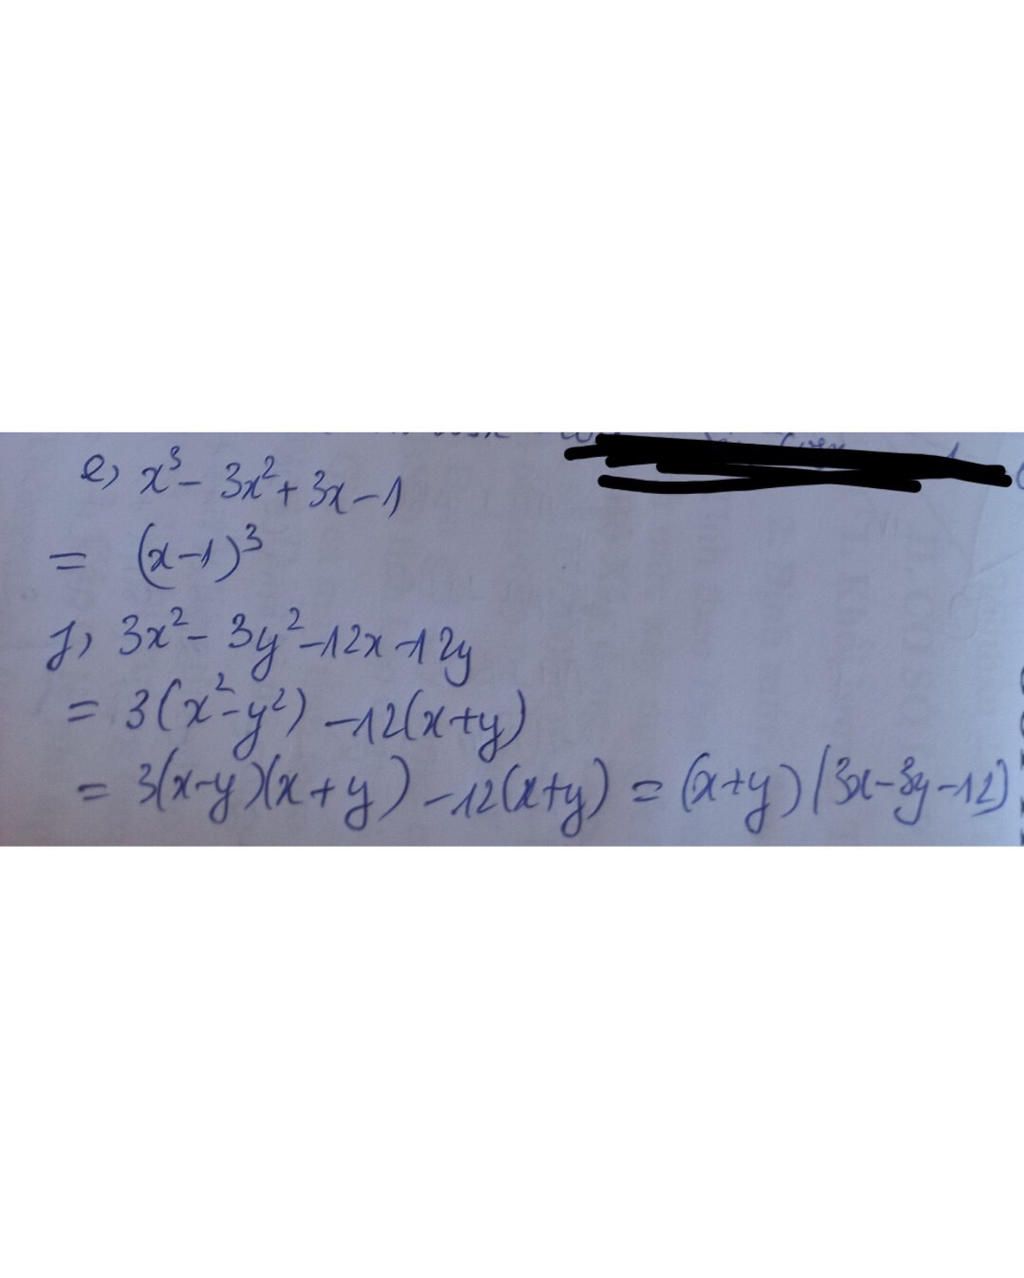 e) x³ - 3x² + 3x - 1
= (x - 1)³
f) 3x² - 3y² - 12x - 12y
= 3(x² - y²) - 12(x + y)
= 3(x - y)(x + y) - 12(x + y) = (x + y)(3x - 3y - 12)